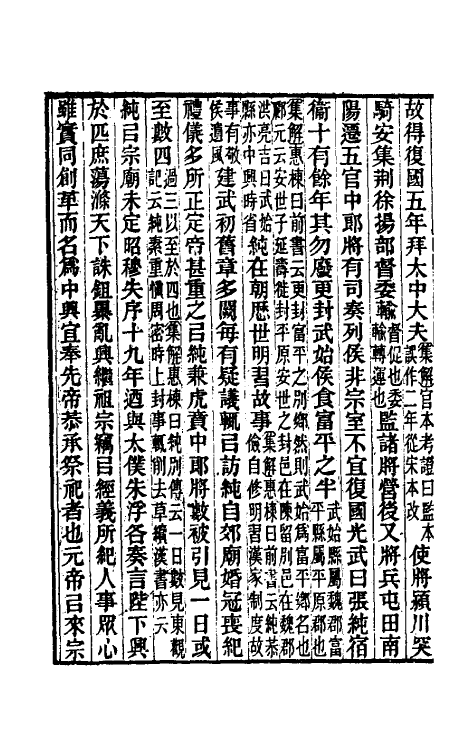 故得復國五年拜太中大夫集解官本考證曰監本誤作二年從宋本改使將潁川突
騎安集荆徐揚部督委輸督促也委輸轉運也監諸將營後又將兵屯田南
陽遷五官中郎將有司奏列侯非宗室不宜復國光武曰張純宿
衞十有餘年其勿廢更封武始侯食富平之半武始縣屬魏郡富平縣屬平原郡也
集解惠棟曰前書云更封富平之别鄉然則武始爲富平鄉名也酈元云安世子延壽徙封平原安世之封邑在陳留别邑在魏郡
洪亮吉曰武始縣亦中興時省純在朝歷世明習故事集解惠棟曰前書云純恭儉自修明習漢家制度故
事有敬侯遺風建武初舊章多闕每有疑議輒㠯訪純自郊廟婚冠喪紀
禮儀多所正定帝甚重之㠯純兼虎賁中郎將數被引見一日或
至數四過三以至於四也集解惠棟曰純别傳云一日數見東觀記云純素重慎周密時上封事輒削去草續漢書亦云
純㠯宗廟未定昭穆失序十九年迺與太僕朱浮各奏言陛下興
於匹庶蕩滌天下誅鉏暴亂興繼祖宗竊㠯經義所紀人事眾心
雖實同創革而名爲中興宜奉先帝恭承祭祀者也元帝㠯來宗